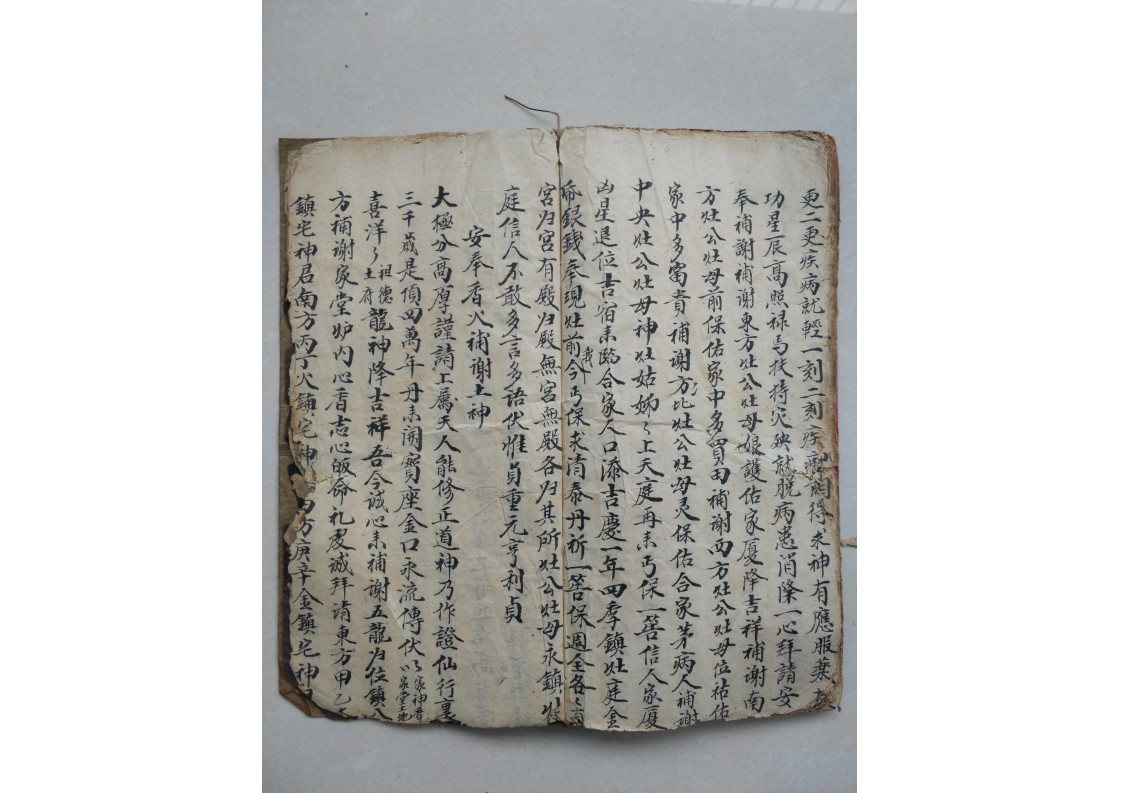 更二更疾病就輕一刻二刻疾病就得求神有應服藥有
功星辰高照禄馬扶持灾殃就脱病患消除一心拜請安
奉補謝補謝東方灶公灶母娘護佑家厦降吉祥補謝南
方灶公灶母前保佑家中多買田補謝西方灶公灶母位祜佑
家中多富貴補謝方北灶公灶母灵保佑合家茅病人補謝
中央灶公灶母神灶姑姊〻上天庭再来丐保一筶信人家厦
凶星退位吉宿来臨合家人口添吉慶一年四季鎮灶庭金
銀錢奉現灶前今丐保求清泰丹祈一筶保週全各〻
宫归宫有殿归殿無宫無殿各归其所灶公灶母永鎮灶
庭信人不敢多言多語伏惟貞重元亨利貞
安奉香火補謝土神
大極分高厚謹請上属天人能修正道神乃作證仙行裏
三千歲是頂四萬年丹来開寳座金口永流傳伏以家神香 家堂土地
喜洋〻祖德 土府龍神降吉祥吾今誠心来補謝五龍归位鎮八
方補謝家堂炉内心香志心皈命礼虔誠拜請東方甲乙木
鎮宅神君南方丙丁火鎮宅神 西方庚辛金鎮宅神君